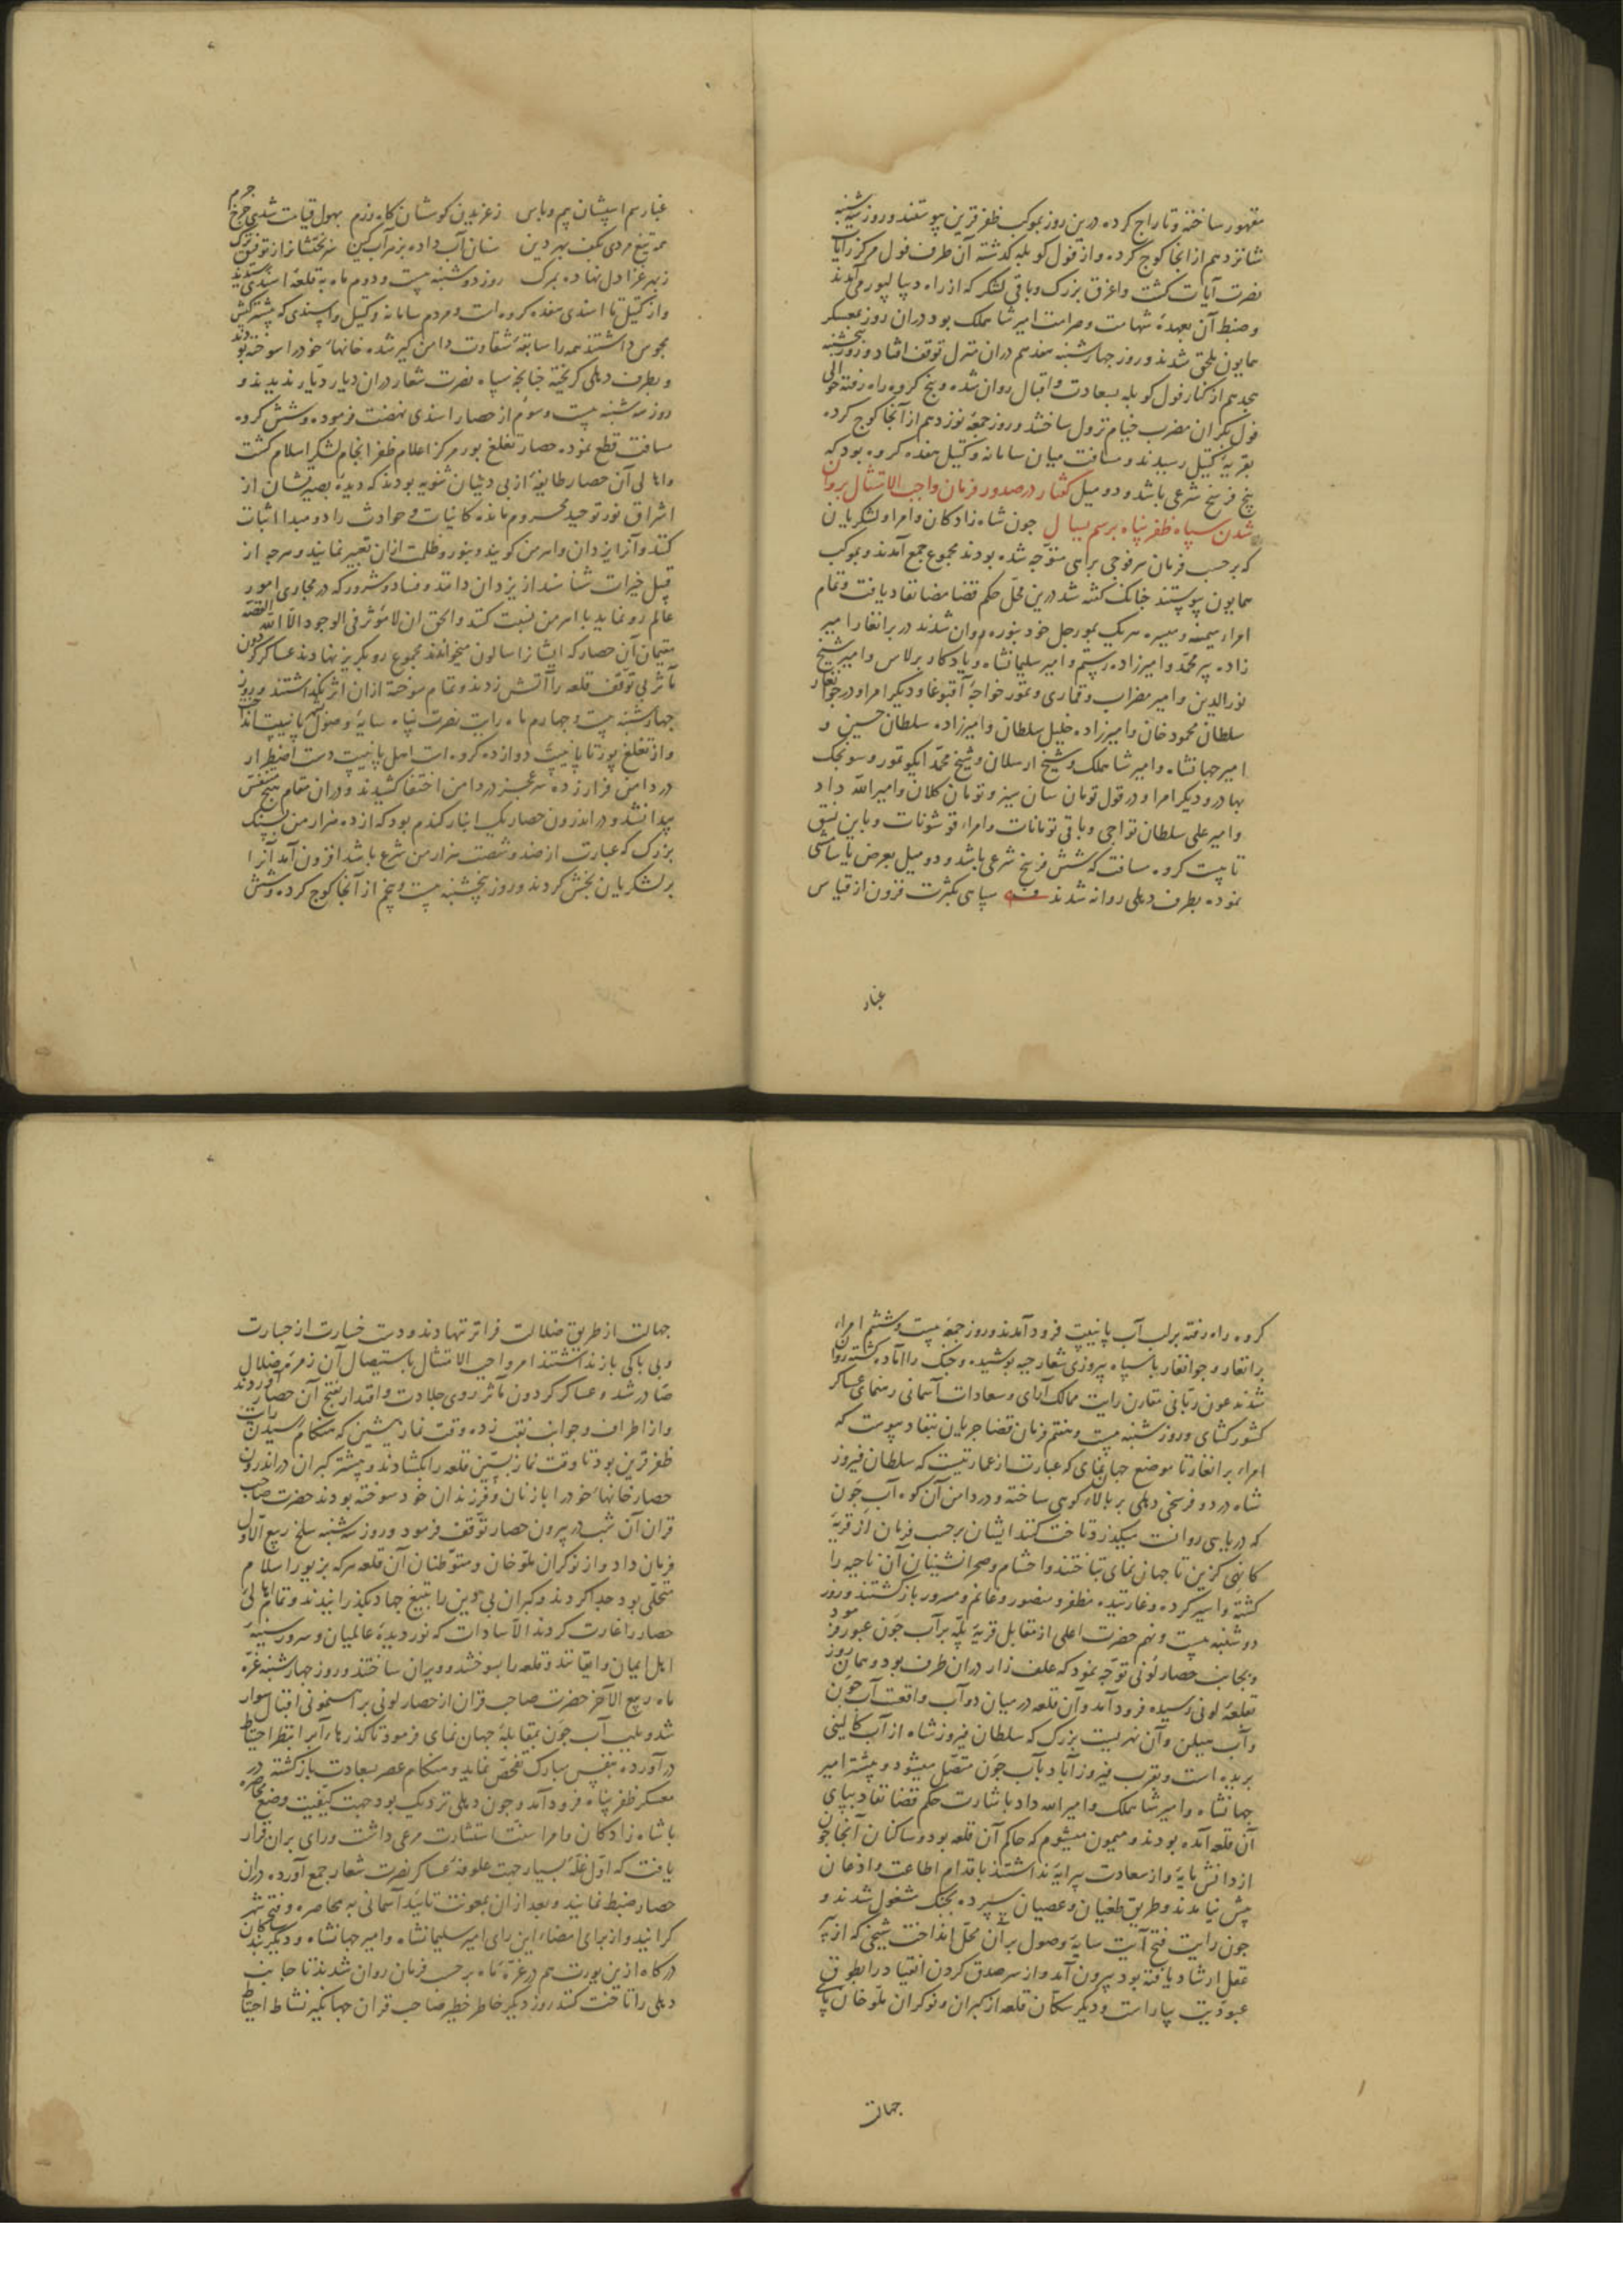 مقهور ساخته و تاراج کرده درین روز بموکب ظفر قرین پیوستند و روز سه شنبه
شانزدهم از انجا کوچ کرده و از فول کوبله کذشته آن طرف فول مرکز رایات
نصرت آیات کشت و اغرق بزرک و باقی لشکر که از راه دیبالپور می آمدند
و ضبط آن بعهدهٔ شهامت و صرامت امیر شاهملک بود دران روز بمعسکر
همایون ملحق شدند و روز جهارشنبه هفدهم دران منزل توقف افتاد و روز پنجشنبه
هجدهم از کنار فول کوبله بسعادت و اقبال روان شده و پنج کروه راه رفته حوالی
فول بکران مضرب خیام نزول ساختند و روز جمعه نوزدهم از آنجا کوچ کرده
بقریهٔ کیتل رسیدند و مسافت میان سامانه و کیتل هفده کروه بود که
پنج فرسخ شرعی باشد و دو میل کفتار در صدور فرمان واجب الامتثال بروان
شدن سپاه ظفر پناه برسم یسال جون شاه زادکان و امرا و لشکریان
که برحسب فرمان هر فوجی براهی متوجه شده بودند مجموع جمع آمدند و بموکب
همایون پیوستند جنانک کفته شد درین محل حکم قضا مضا نفاد یافت و تمام
امراء میمنه و میسره هر یک بمورجل خود بتوره روان شدند در برانغار امیر
زاده پیر محمد و امیرزاده رستم و امیر سلیمانشاه و یادکار برلاس و امیر شیخ
نورالدین و امیر مضراب و قماری و تمور خواجهٔ آقبوغا و دیکر امرا و در جوانغار
سلطان محمود خان و امیرزاده خلیل سلطان و امیرزاده سلطان حسین و
امیر جهانشاه و امیر شاهملک و شیخ ارسلان و شیخ محمد ایکو تمور و سونجک
بهادر و دیکر امرا و در قول تومان سان سیز و تومان کلان و امیر الله داد
و امیر علی سلطان تواجی و باقی تومانات و امراء قوشونات و باین نسق
تا بیست کروه مسافت که شش فرسخ شرعی باشد و دو میل بعرض یاسامشی
نموده بطرف دهلی روانه شدند سپاهی بکثرت فزون از قیاس
غبار
غبار سم اسپشان بیم و باس ز غریدن کوشان کاه رزم بهول قیامت شدی جرخ جزم
همه تیغ مردی بکف بهر دین سنان آب داده بزهرآب کین
ز بهر غزا دل نهاده بمرک روز دوشنبه بیست و دوم ماه به قلعهٔ اسندی رسیدند
و از کیتل تا اسندی هفده کروه است و مردم سامانه و کیتل و اسپندی که بیشتر کیش
مجوس داشتند همه را سابقهٔ شقاوت دامن کیر شده خانهاء خود را سوخته بودند
و بطرف دهلی کریخته جنانچه سپاه نصرت شعار دران دیار دیار ندیدند و
روز سه شنبه بیست و سوم از حصار اسندی نهضت فرموده و شش کروه
مسافت قطع نموده حصار تغلغ پور مرکز اعلام ظفر انجام لشکر اسلام کشت
و اهالی آن حصار طایفهٔ از بی دینان ثنویه بودند که دیدهٔ بصیرتشان از
اشراق نور توحید محروم مانده کاینات و حوادث را دو مبدا اثبات
کنند و آنرا یزدان و اهرمن کویند و بنور و ظلمت ازان تعبیر نمایند و هر جه از
قبیل خیرات شناسند از یزدان دانند و فساد و شرور که در مجاری امور
عالم رو نماید باهرمن نسبت کنند و الحق ان لا مؤثر فی الوجود الا الله القصه
مقیمان آن حصار که ایشانرا سالون میخوانند مجموع رو بکریز نهادند عساکر کردون
مآثر بی توقف قلعه را آتش زدند و تمام سوخته ازان اثر نکذاشتند و روز
جهارشنبه بیست و جهارم ماه رایت نصرت پناه سایهٔ وصول بشهر پانیپت انداخت
و از تغلغ پور تا پانیپت دوازده کروه است اهل پانیپت دست اضطرار
در دامن فرار زده سر عجز در دامن اختفا کشیدند و دران مقام هیچ متنفس
پیدا نشد و در اندرون حصار یک انبار کندم بود که از ده هزار من بسنک
بزرک که عبارت از صد و شصت هزار من شرع باشد افزون آمد آنرا
بر لشکریان بخش کردند و روز پنجشنبه بیست و پنجم از آنجا کوچ کرده و شش
کروه راه رفته بر لب آب پانیپت فرود آمدند و روز جمعه بیست و ششم امراء
برانغار و جوانغار با سپاه پیروزی شعار جیبه پوشیده و جنک را آماده کشته روان
شدند عون ربانی مقارن رایت ممالک آرای و سعادات آسمانی رهنمای عساکر
کشورکشای و روز شنبه بیست و هفتم فرمان قضا جریان بنفاد پیوست که
امراء برانغار تا موضع جهان نمای که عبارت از عمارتیست که سلطان فیروز
شاه در دو فرسخی دهلی بر بالاء کوهی ساخته و در دامن آن کوه آب جون
که دریاهی روانست میکذرد تاخت کنند ایشان برحسب فرمان از قریهٔ
کانهی کزین تا جهان نمای تاختند و احشام و صحرانشینان آن ناحیه را
کشته و اسیر کرده و غارتیده مظفر و منصور و غانم و مسرور بازکشتند و روز
دوشنبه بیست و نهم حضرت اعلی از مقابل قریهٔ پله بر آب جون عبور فرمود
و بجانب حصار لونی توجه نمود که علف زار دران طرف بود و همان روز
بقلعهٔ لونی رسیده فرود آمد و آن قلعه در میان دو آب واقعست آب جون
و آب هیلن و آن نهریست بزرک که سلطان فیروز شاه از آب کالینی
بریده است و بقرب فیروزآباد بآب جون متصل میشود و بیشتر امیر
جهانشاه و امیر شاهملک و امیر الله داد باشارت حکم قضا نفاد بپای
آن قلعه آمده بودند و میمون میشوم که حاکم آن قلعه بود و ساکنان آنجا جون
از دانش مایهٔ و از سعادت پیرایهٔ نداشتند باقدام اطاعت و اذعان
پیش نیامدند و طریق طغیان و عصیان سپرده بجنک مشغول شدند و
جون رایت فتح آیت سایهٔ وصول بر آن محل انداخت شیخی که از پیر
عقل ارشاد یافته بود بیرون آمد و از سر صدق کردن انقیاد را بطوق
عبودیت بیاراست و دیکر سکان قلعه از کبران و نوکران ملو خان پای
جهالت
جهالت از طریق ضلالت فراتر نهادند و دست خسارت از جسارت
و بی باکی باز نداشتند امر واجب الامتثال باستیصال آن زمرهٔ ضلال
صادر شد و عساکر کردون مآثر روی جلادت و اقتدار بفتح آن حصار آوردند
و از اطراف و جوانب نقب زده وقت نماز پیشین که هنکام رسیدن رایت
ظفر قرین بود تا وقت نماز پسین قلعه را بکشادند و بیشتر کبران در اندرون
حصار خانهاء خود را با زنان و فرزندان خود سوخته بودند حضرت صاحب
قران آن شب در بیرون حصار توقف فرمود و روز سه شنبه سلخ ربیع الاول
فرمان داد و از نوکران ملو خان و متوطنان آن قلعه هر که بزیور اسلام
متحلی بود جدا کردند و کبران بی دین را بتیغ جهاد بکذرانیدند و تمام اهالی
حصار را غارت کردند الا سادات که نور دیدهٔ عالمیان و سرور سینهٔ
اهل ایمان و ایقانند و قلعه را بسوختند و ویران ساختند و روز جهارشنبه غرهٔ
ماه ربیع الآخر حضرت صاحب قران از حصار لونی برهنمونی اقبال سوار
شد و بلب آب جون بمقابلهٔ جهان نمای فرمود تا کذرهاء آبرا بنظر احتیاط
درآورده بنفس مبارک تفحص نماید و هنکام عصر بسعادت بازکشته در
معسکر ظفر پناه فرود آمد و جون دهلی نزدیک بود جهت کیفیت وضع محاصره
با شاه زادکان و امرا سنت استشارت مرعی داشت و رای بران قرار
یافت که اول غلهٔ بسیار جهت علوفهٔ عساکر نصرت شعار جمع آورده دران
حصار ضبط نمایند و بعد ازان بمعونت تایید آسمانی به محاصره و فتح شهر
کرایند و از برای امضاء این رای امیر سلیمانشاه و امیر جهانشاه و دیکر بندکان
درکاه ازین یورت هم در غرهٔ ماه برحسب فرمان روان شدند تا جانب
دهلی را تاخت کنند روز دیکر خاطر خطیر صاحب قران جهانکیر نشاط احتیاط